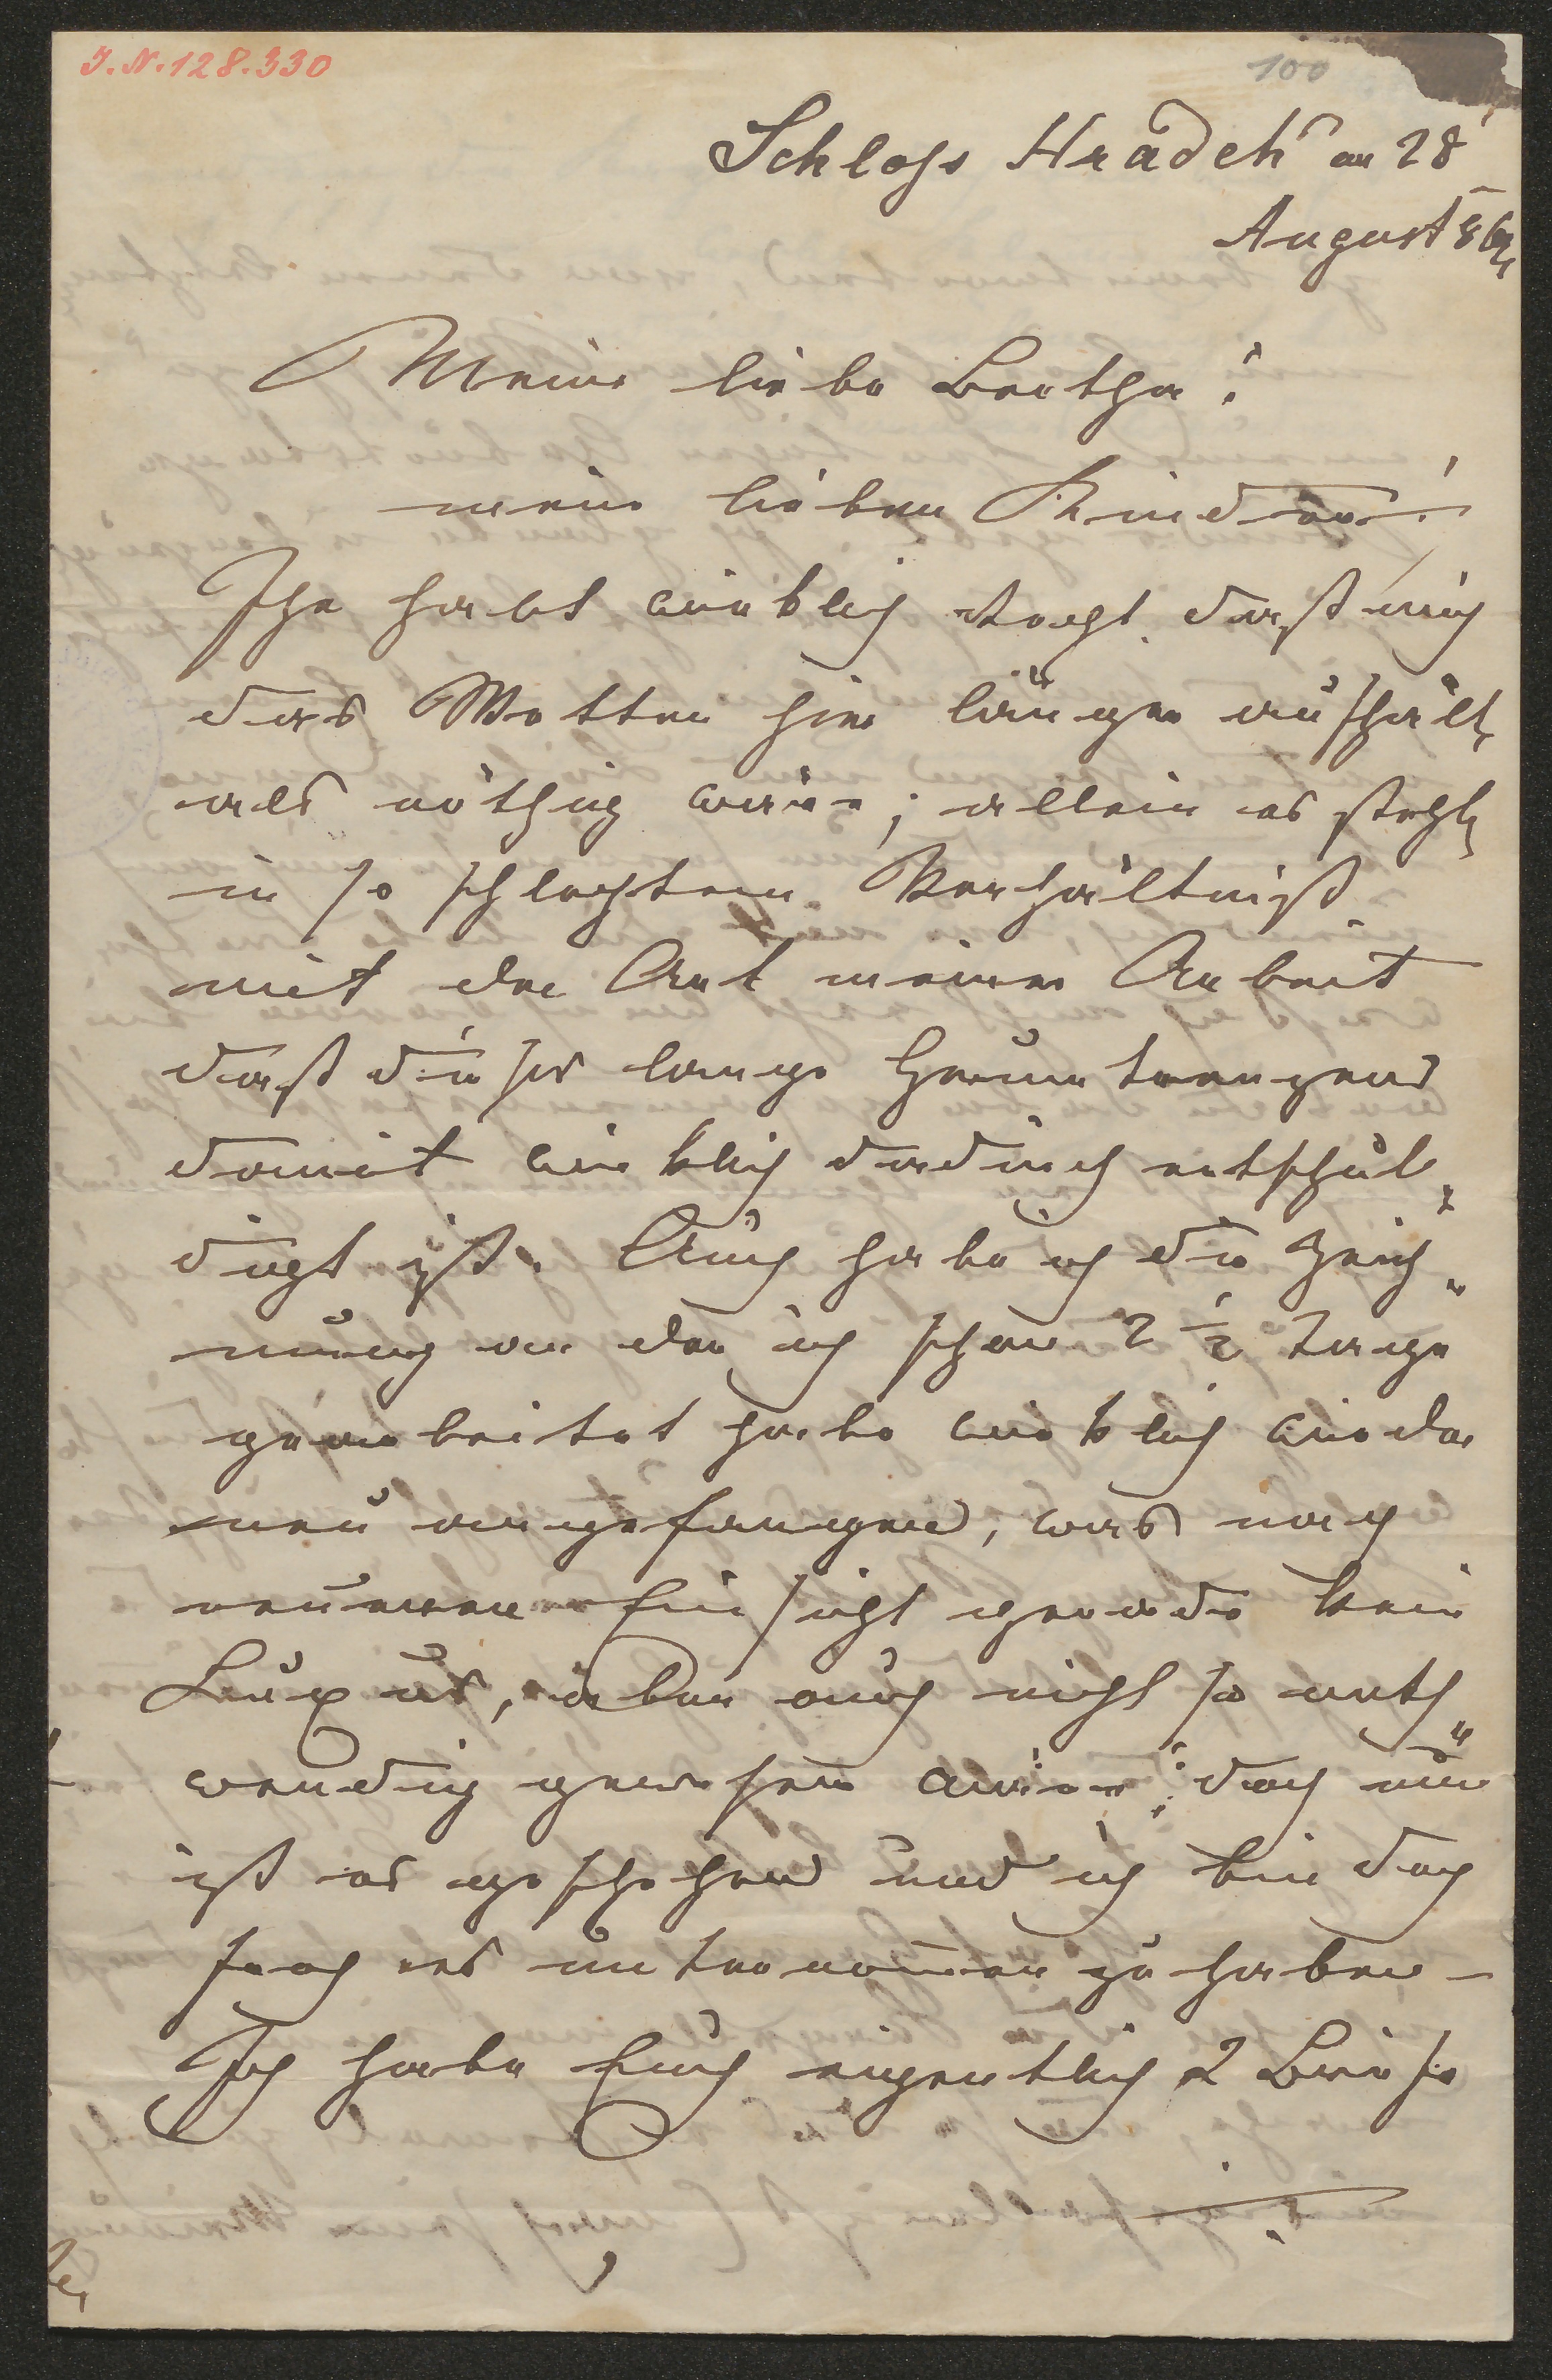 I.N.128.330
100
Schloss Hrádek am 28
August 869
Meine liebe Bertha!
meine lieben Kinder!
Ihr habt wirklich recht, daß mich
das Wetter hier länger aufhält,
als nöthig wäre; allein es steht
in so schlechtem Verhältniß
mit der Art meiner Arbeit
daß dieses lange Herumtrengend
damit wirklich dadurch entschul„
digt ist. Auch habe ich die Zeich„
nung an der ich schon 2 ½ Tage
gearbeitet habe wirklich wieder
neu angefangen, was nach
neuerer Einsicht gerade kein
Luxus, aber auch nicht so noth„
wendig gewesen wäre; doch nun
ist es geschehen und ich bin doch
froh es unternommen zu haben –
Ich habe Euch eigentlich 2 Briefe